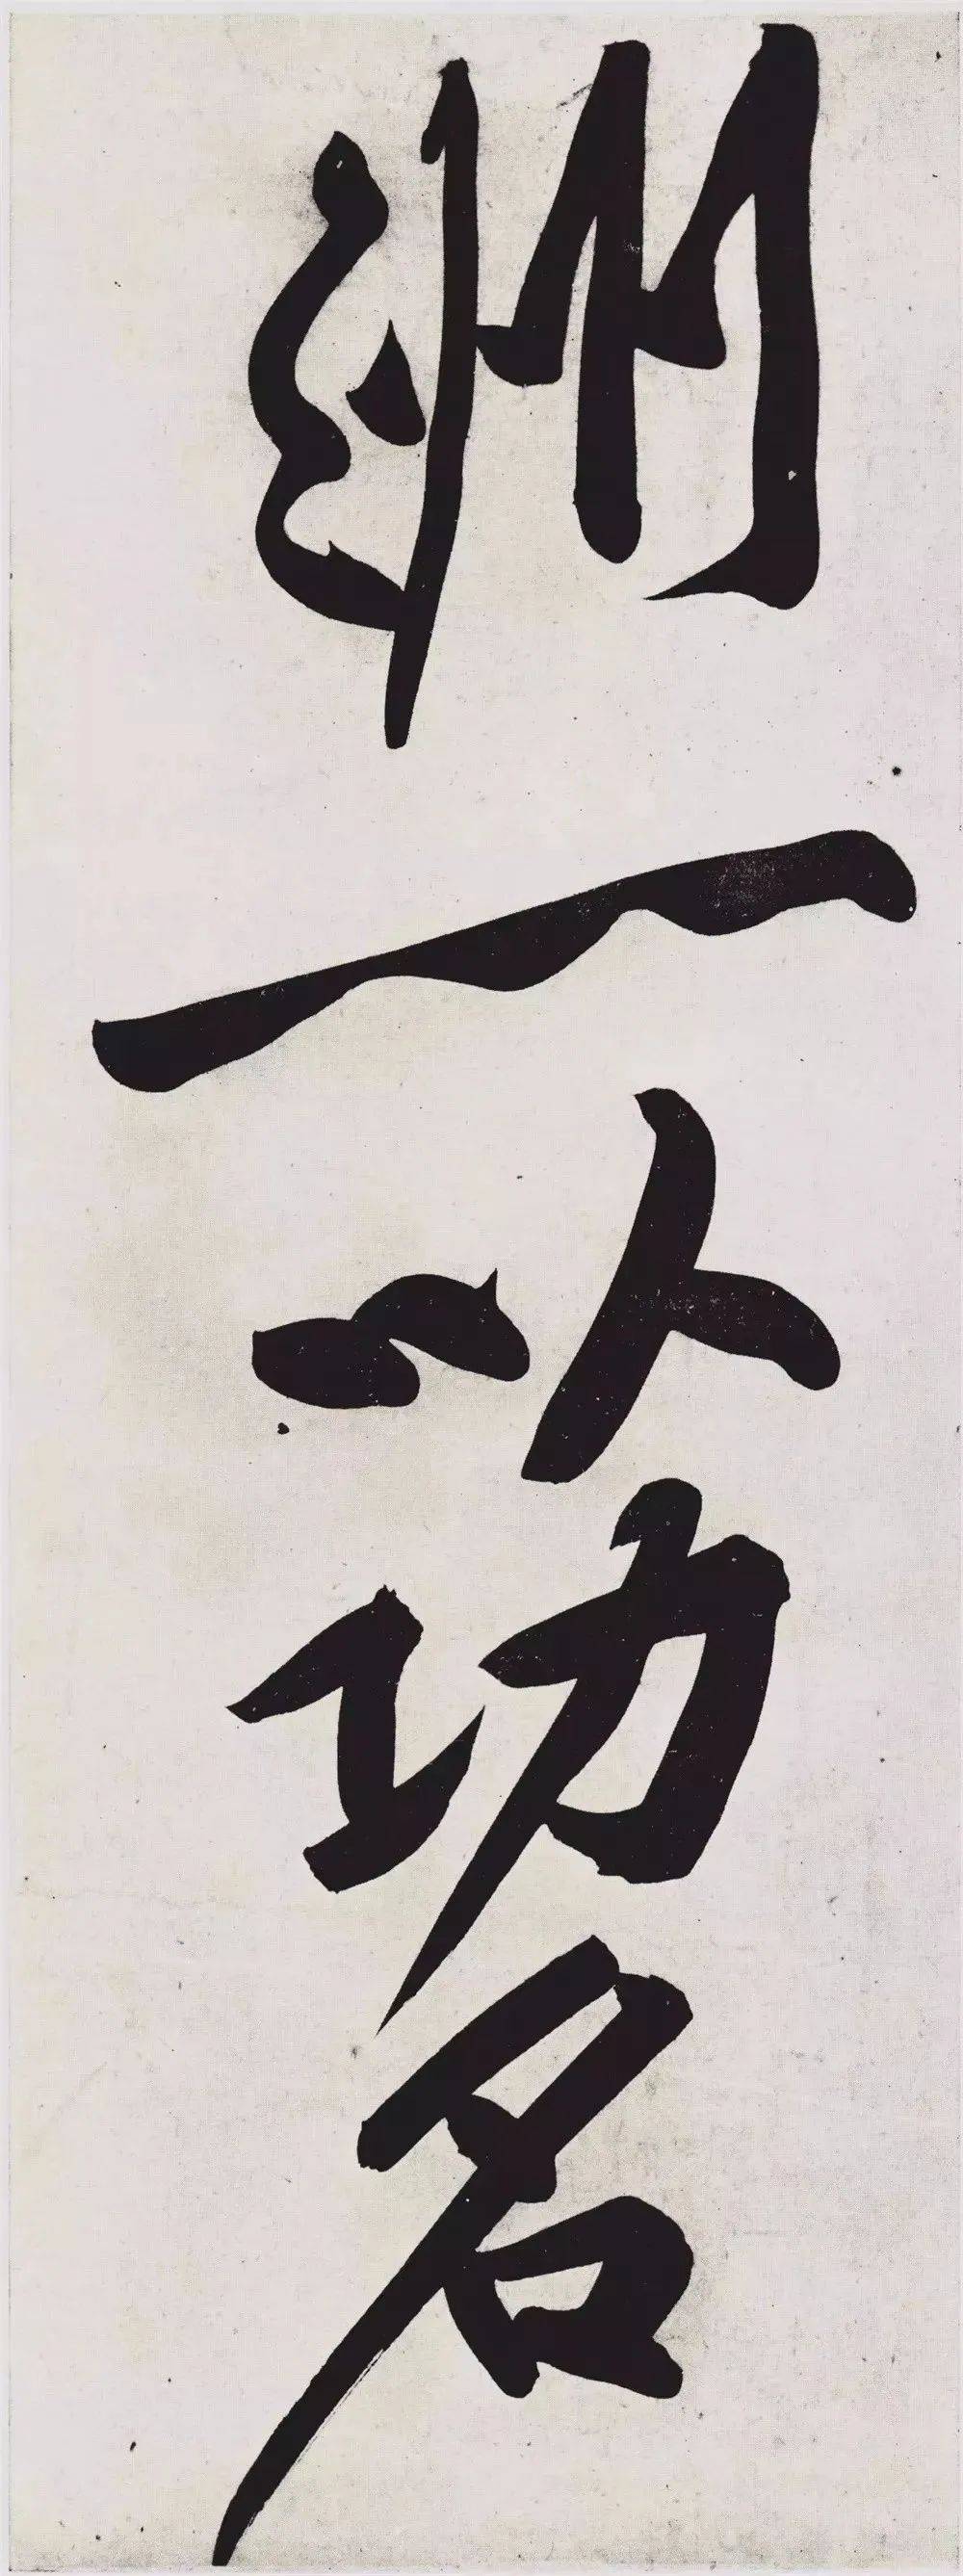 洲一以功名